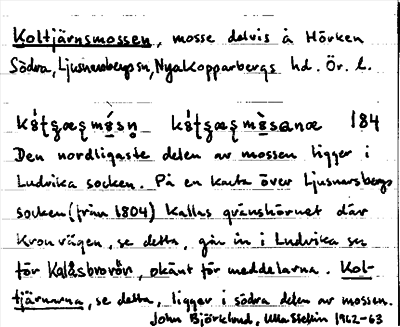 Koltjärnsmossen, mosse delvis å Hörken
Södra, Ljusnarsbergs sn, Nya Kopparbergs hd. Ör. l.
184
Den nordligaste delen av mossen ligger i
Ludvika socken. På en karta över Ljusnarsbergs
socken (från 1804) kallas gränshörnet där
Kronvägen, se detta, går in i Ludvika sn
för Kolåsbrovön, okänt för meddelarna. Kol-
tjärnarna, se detta, ligger i södra delen av mossen.
John Björklund, Ulla Stellin 1962-63